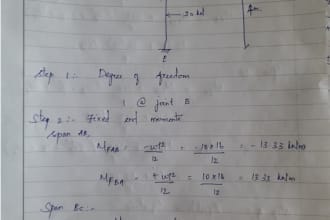 20 kN
4m
E
Step 1:- Degree of freedom
1 @ joint B
Step 2:- Fixed end moments
Span AB
MFAB = -wl² / 12 = -10 x 16 / 12 = - 13.33 kNm
MFBA = + wl² / 12 = 10 x 16 / 12 = 13.33 kNm
Span BC:-